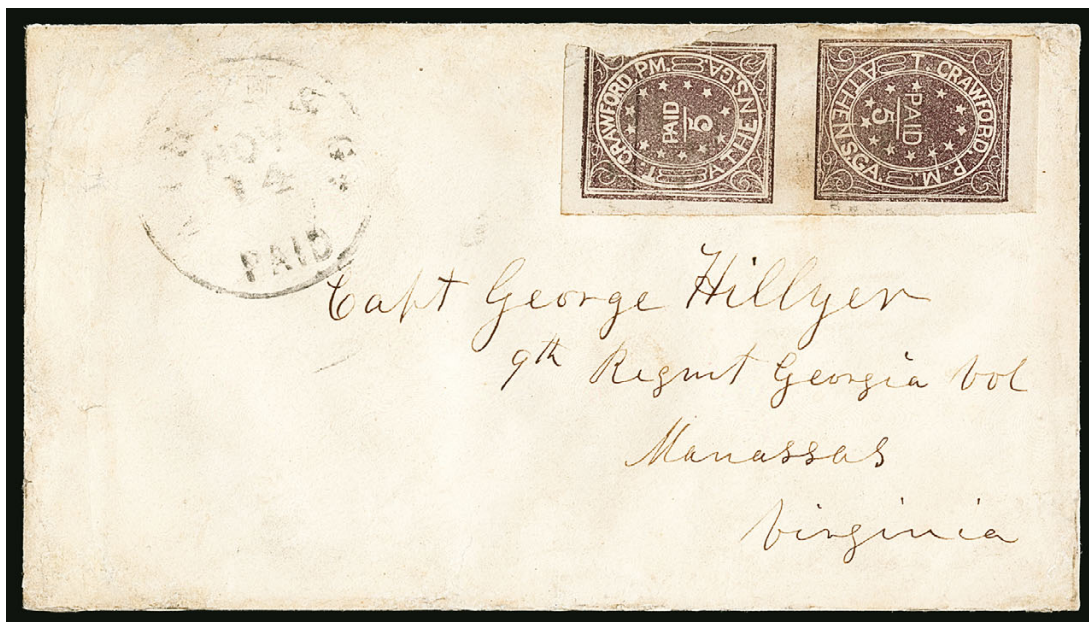 T. CRAWFORD, P.M.
ATHENS, GA.
PAID
5
T. CRAWFORD, P. M.
ATHENS, GA.
PAID
5
NOV
14
PAID
Capt George Hillyer
9th Regmt Georgia Vol
Manassas
Virginia